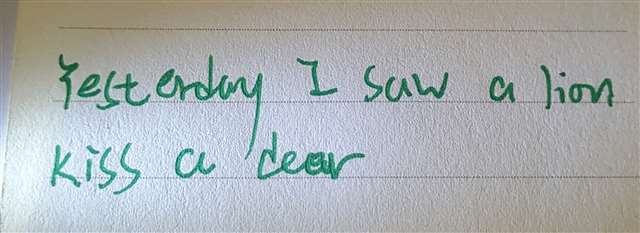 Yesterday I saw a lion
kiss a dear